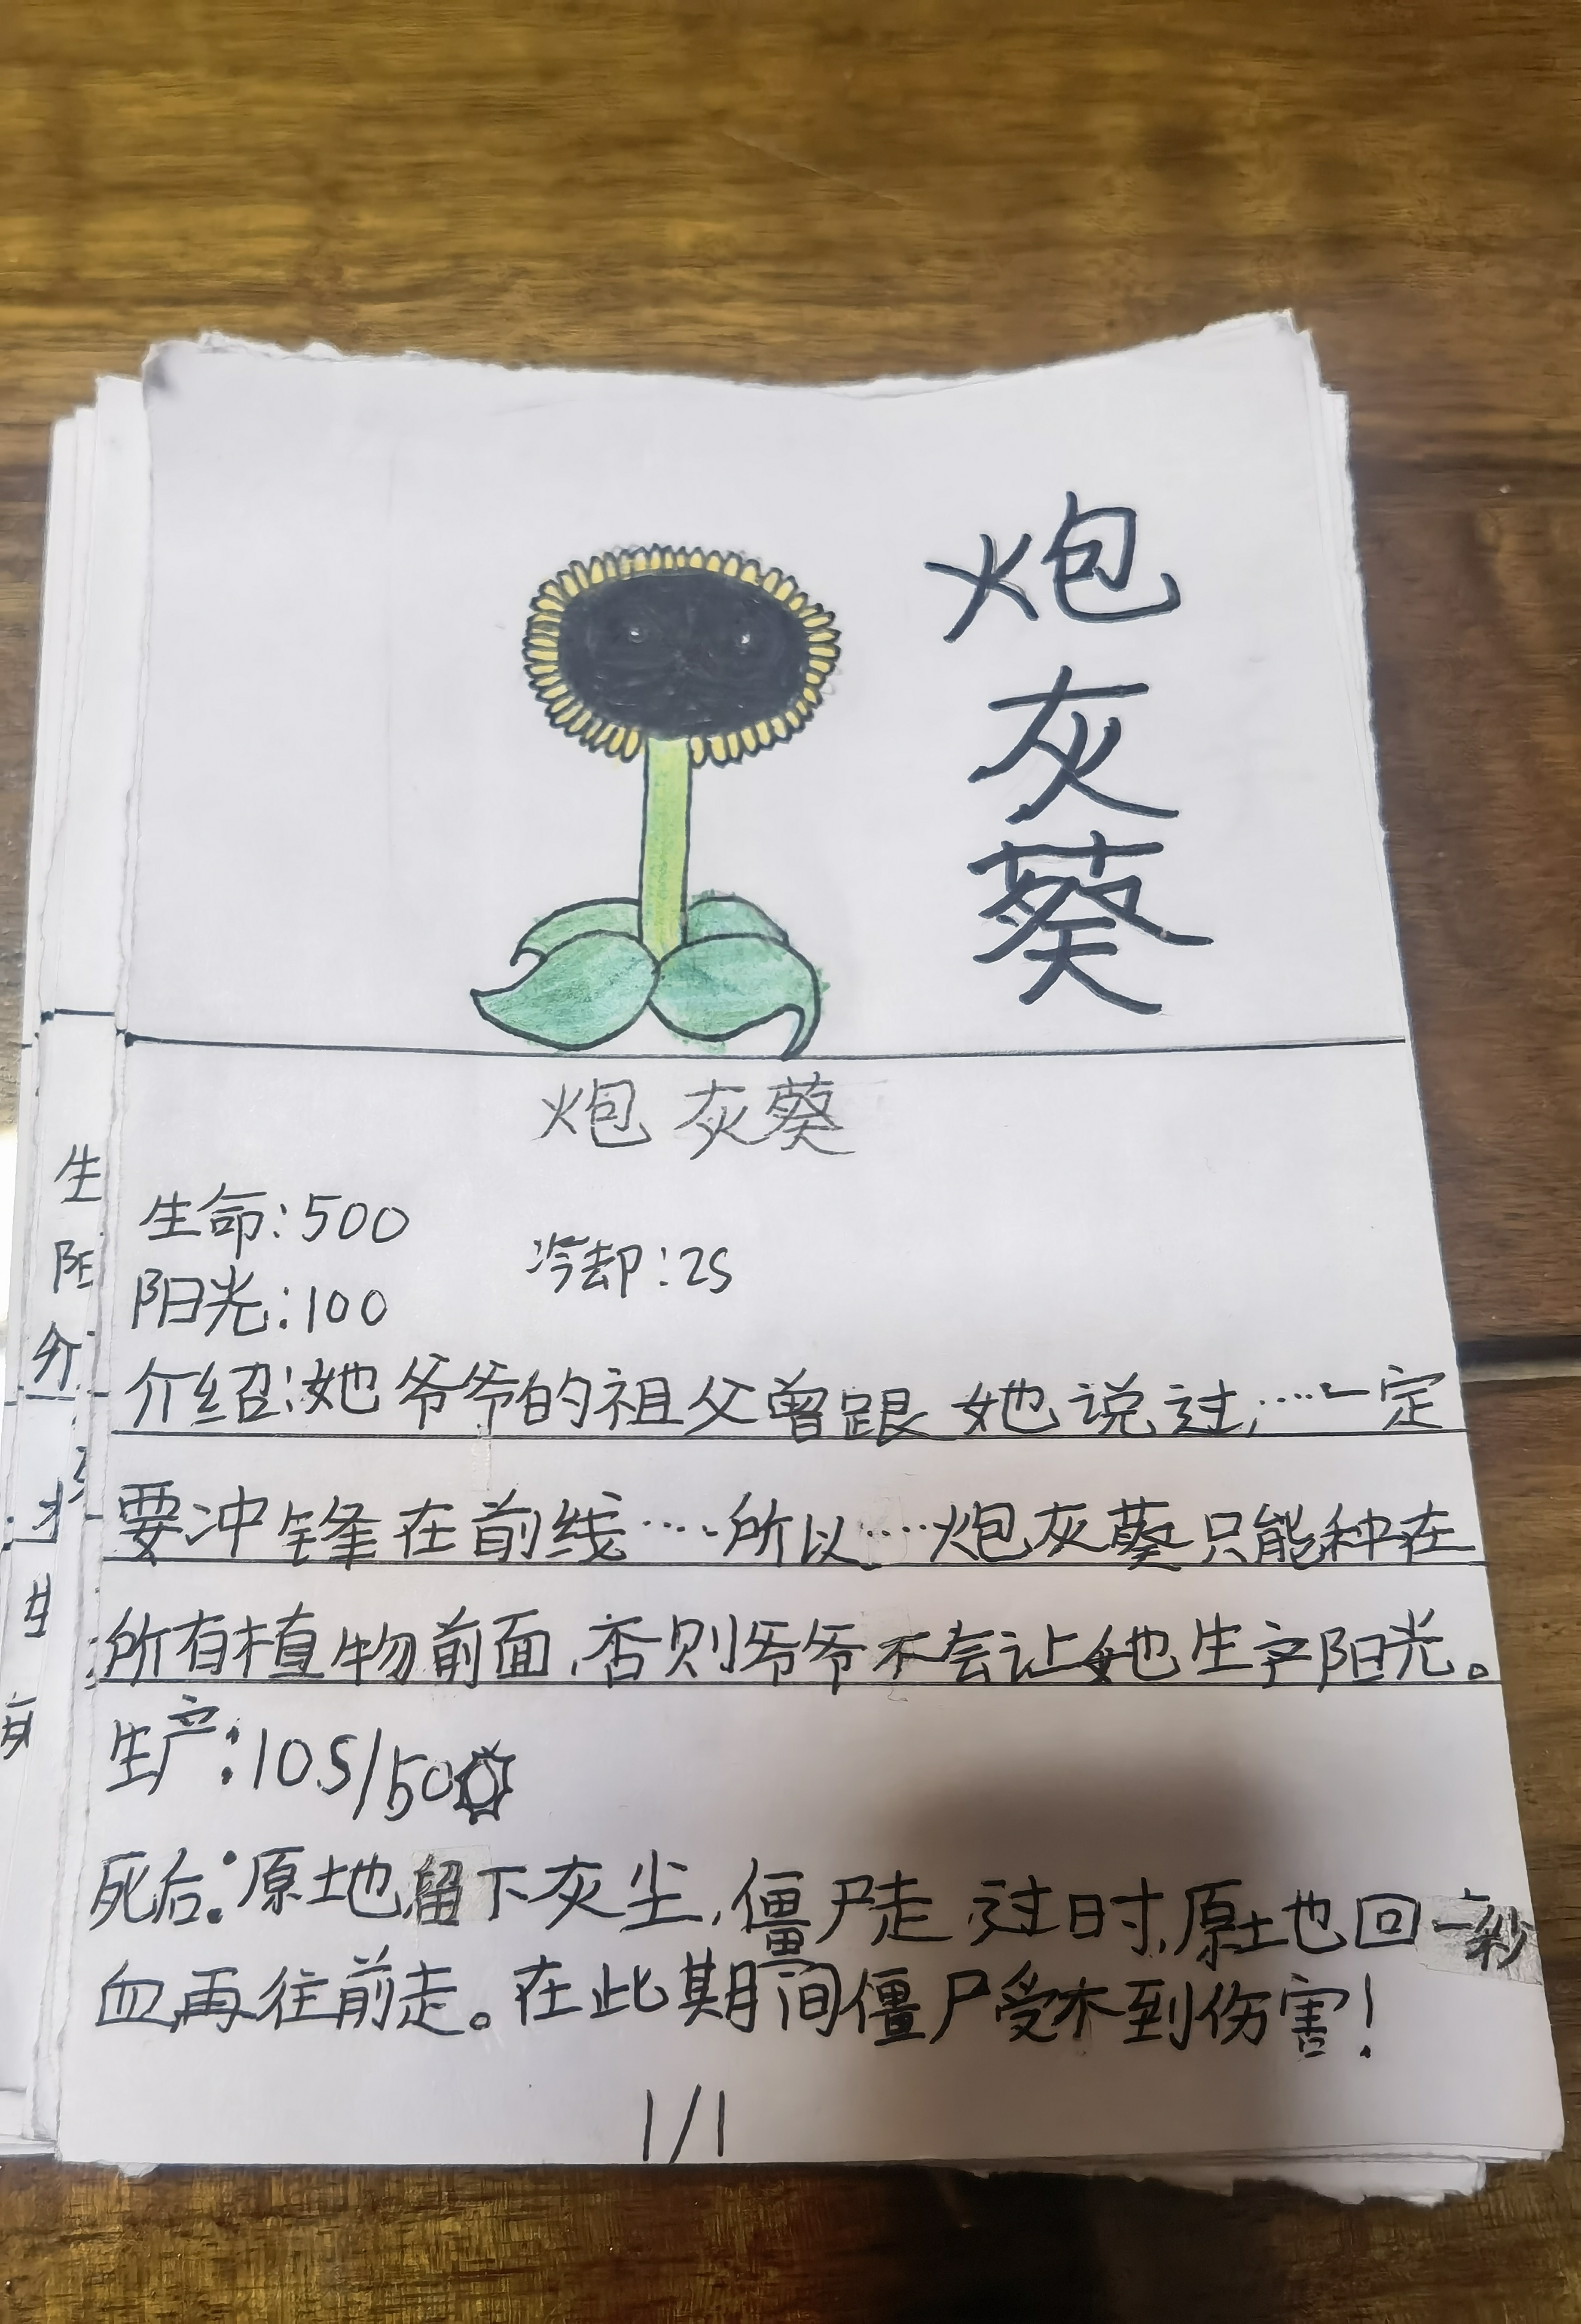 炮灰葵
炮灰葵
生命:500
冷却:2S
阳光:100
介绍:她爷爷的祖父曾跟她说过,……一定
要冲锋在前线……所以……炮灰葵只能种在
所有植物前面,否则爷爷不会让她生产阳光。
生产:10S/50
死后:原地留下灰尘,僵尸走过时,原地回一秒
血再往前走。在此期间僵尸受不到伤害!
1/1
生
阳
介